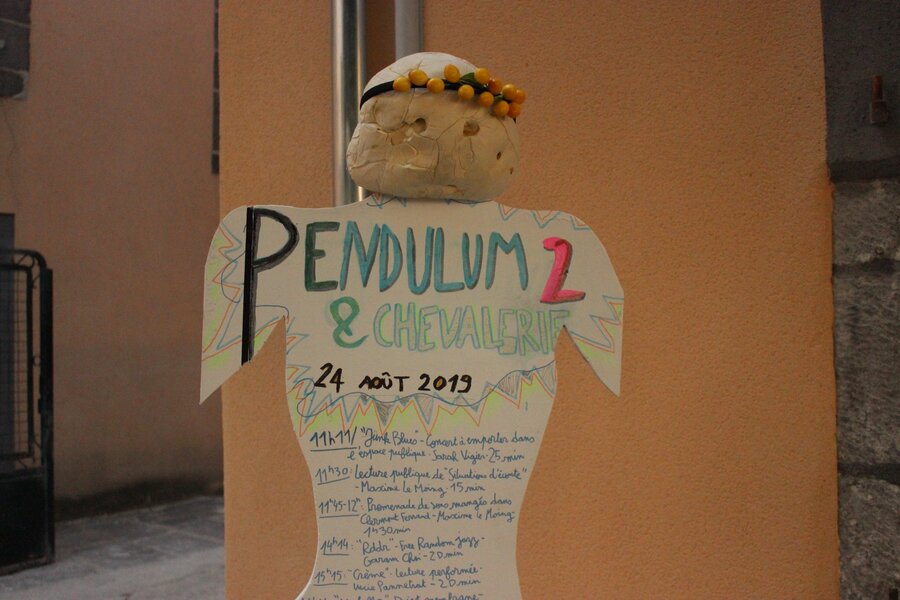 PENDULUM 2
& CHEVALERIE
24 AOÛT 2019
11h11/ "Junk Blues" - Concert à emporter dans
l'espace publique. Sarah Vigier. 25 min
11h30: Lecture publique de "Situations d'écoute"
- Maxime Le Moing 15 min
11h45-12h: Promenade de sons mangés dans
Clermont Ferrand - Maxime le Moing -
1h30min
14h14: "Rddr" - Free Random Jazz -
Garam Chn - 20 min
15h15: "Crème" - Lecture performée -
Lucie Pannetrat - 20 min